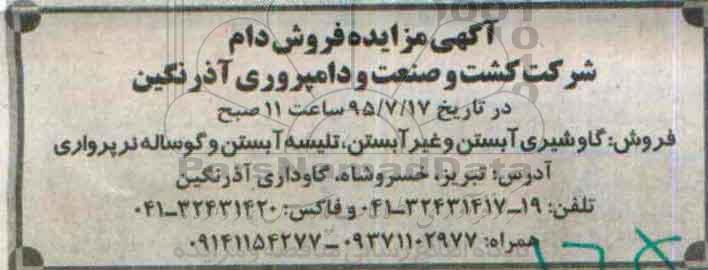 آگهی مزایده فروش دام
شرکت کشت و صنعت و دامپروری آذرنگین
در تاریخ ۹۵/۷/۱۷ ساعت ۱۱ صبح
فروش: گاو شیری آبستن و غیر آبستن، تلیسه آبستن و گوساله نر پرواری
آدرس: تبریز، خسروشاه، گاوداری آذرنگین
تلفن: ۱۹ـ۳۲۴۳۱۴۱۷ـ۰۴۱ و فاکس: ۳۲۴۳۱۴۲۰ـ۰۴۱
همراه: ۰۹۳۷۱۱۰۲۹۷۷ـ۰۹۱۴۱۱۵۴۲۷۷
ParsNamadData